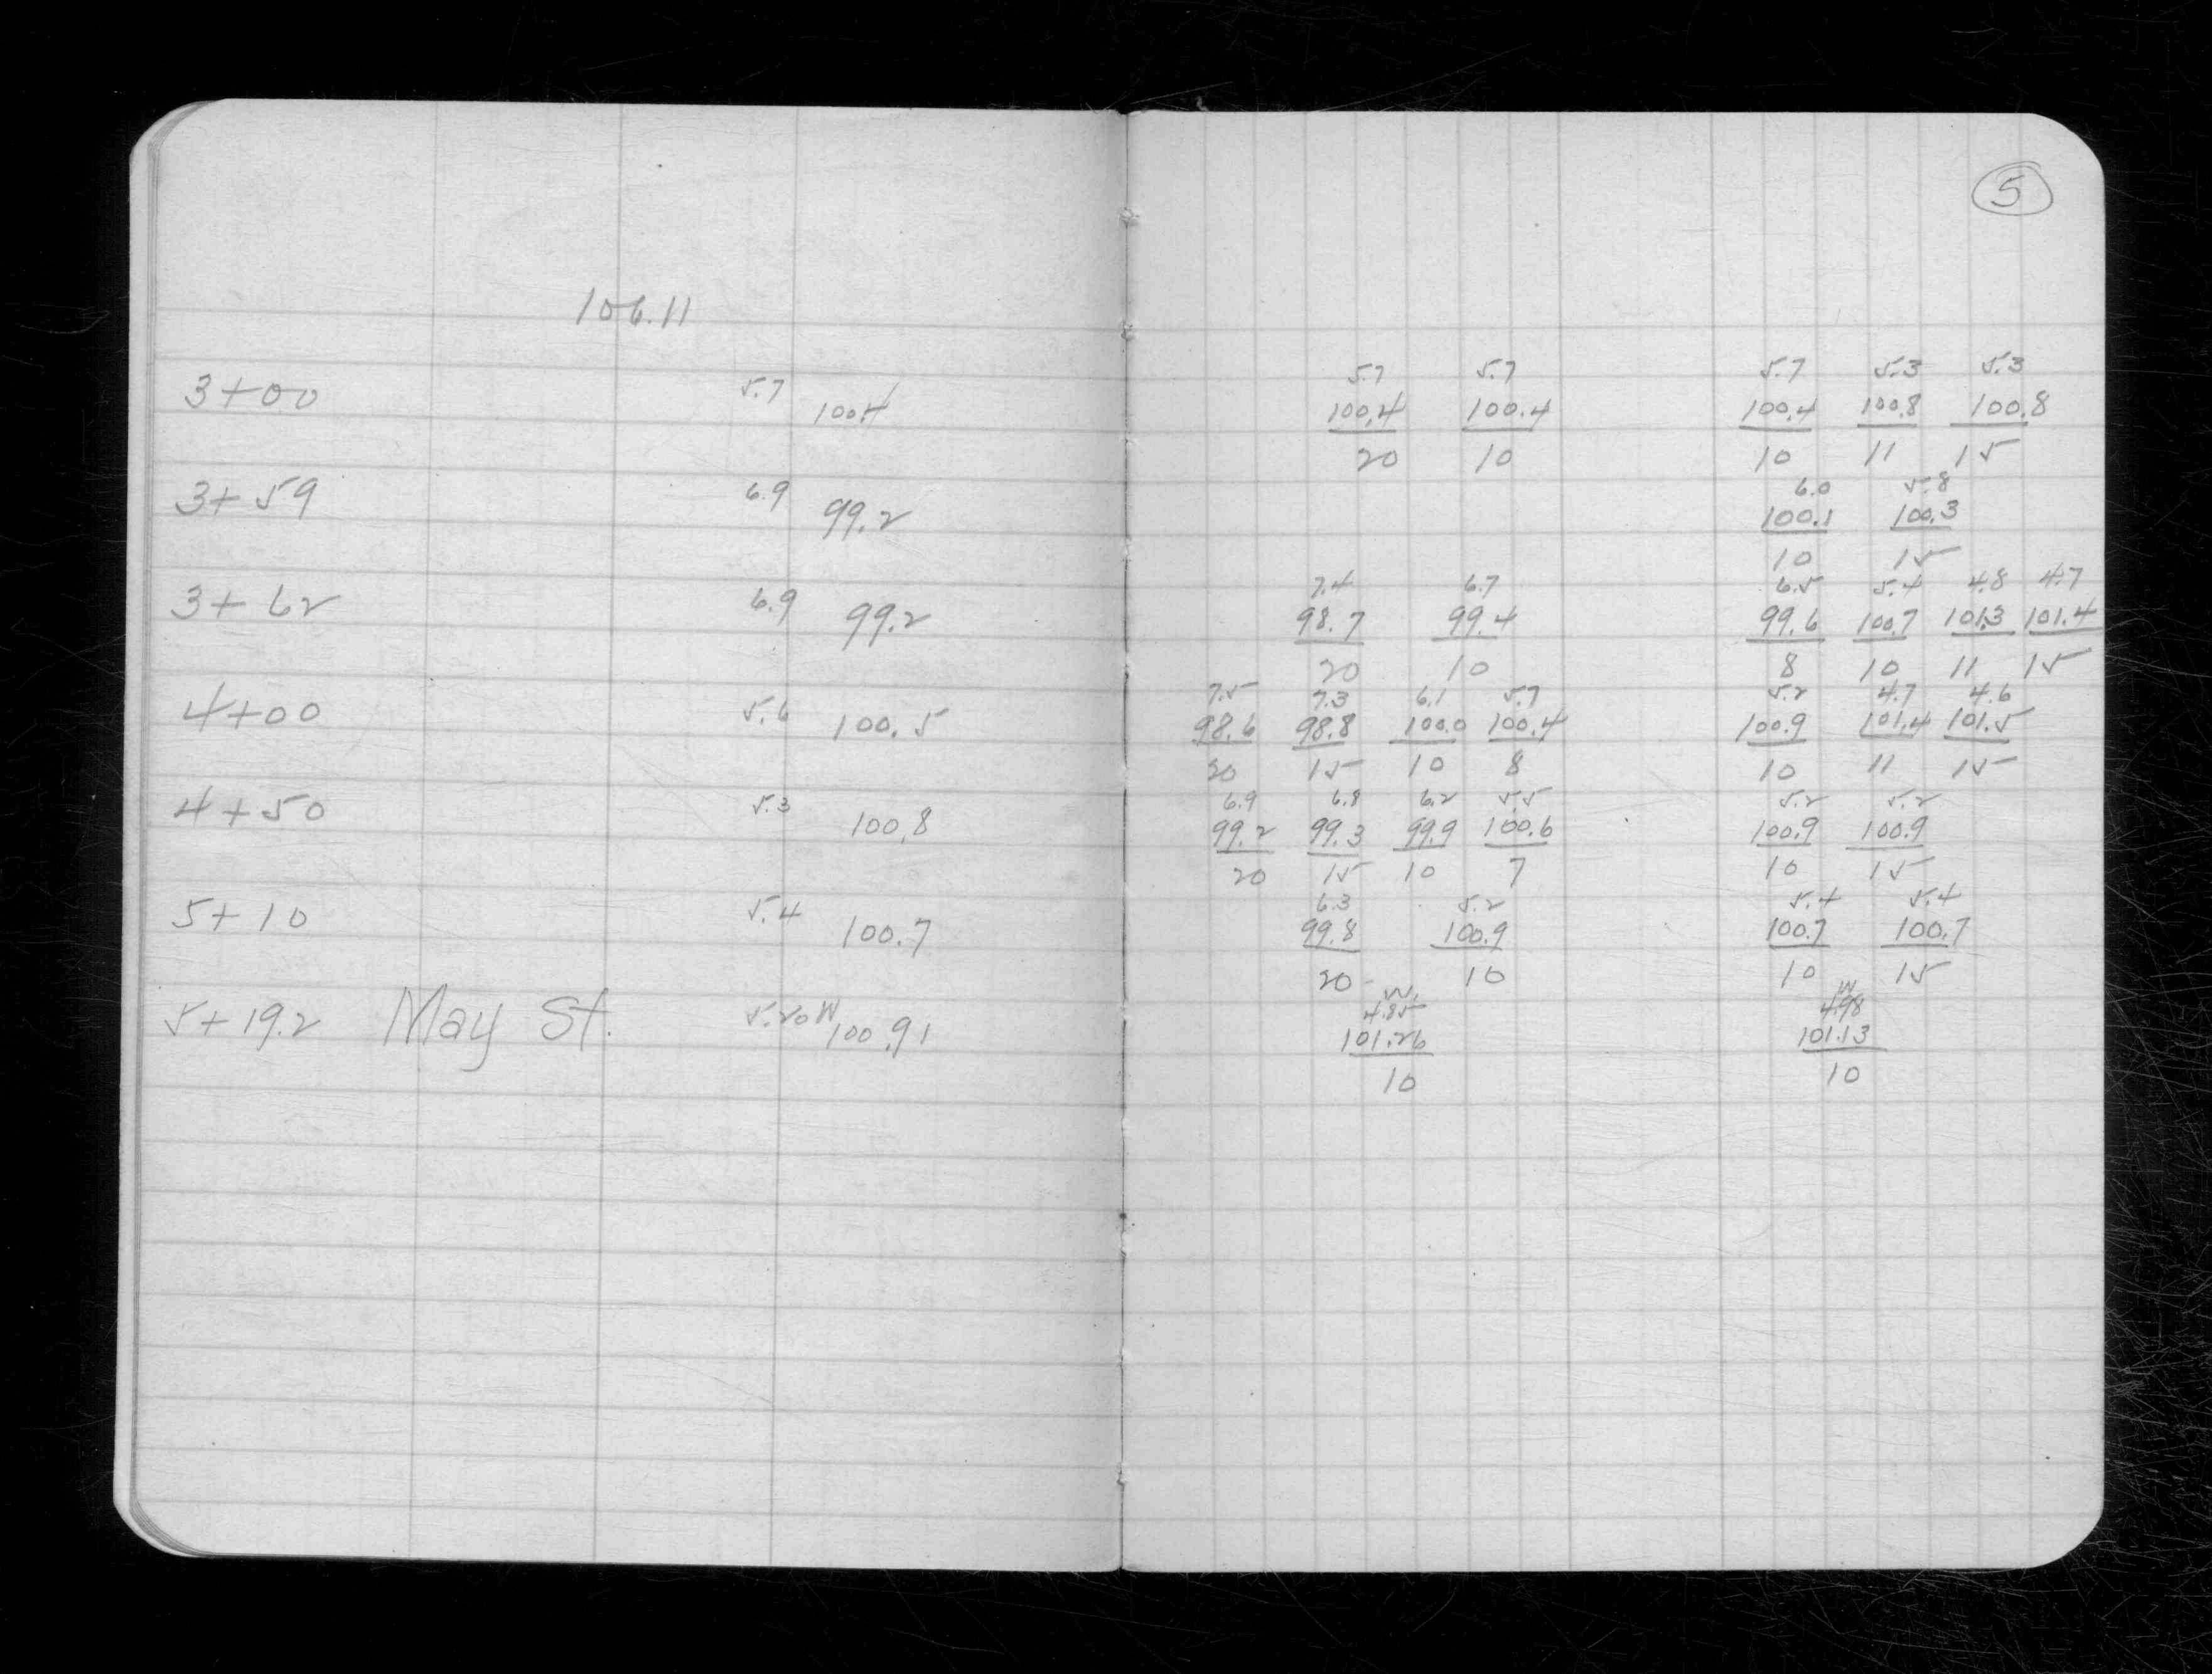 5
106.11
5.7 5.7 5.7 5.3 5.3
3+00 5.7 100.4 100.4 100.4 100.4 100.8 100.8
20 10 10 11 15
6.0 5.8
3+59 6.9 99.2 100.1 100.3
10 15
7.4 6.7 6.5 5.4 4.8 4.7
3+62 6.9 99.2 98.7 99.4 99.6 100.7 101.3 101.4
20 10 8 10 11 15
7.5 7.3 6.1 5.7 5.2 4.7 4.6
4+00 5.6 100.5 98.6 98.8 100.0 100.4 100.9 101.4 101.5
20 15 10 8 10 11 15
6.9 6.8 6.2 5.5 5.2 5.2
4+50 5.3 100.8 99.2 99.3 99.9 100.6 100.9 100.9
20 15 10 7 10 15
6.3 5.2 5.4 5.4
5+10 5.4 100.7 99.8 100.9 100.7 100.7
20 10 10 15
W. W
4.85 4.98
5+19.2 May St. 5.20 W 100.91 101.26 101.13
10 10